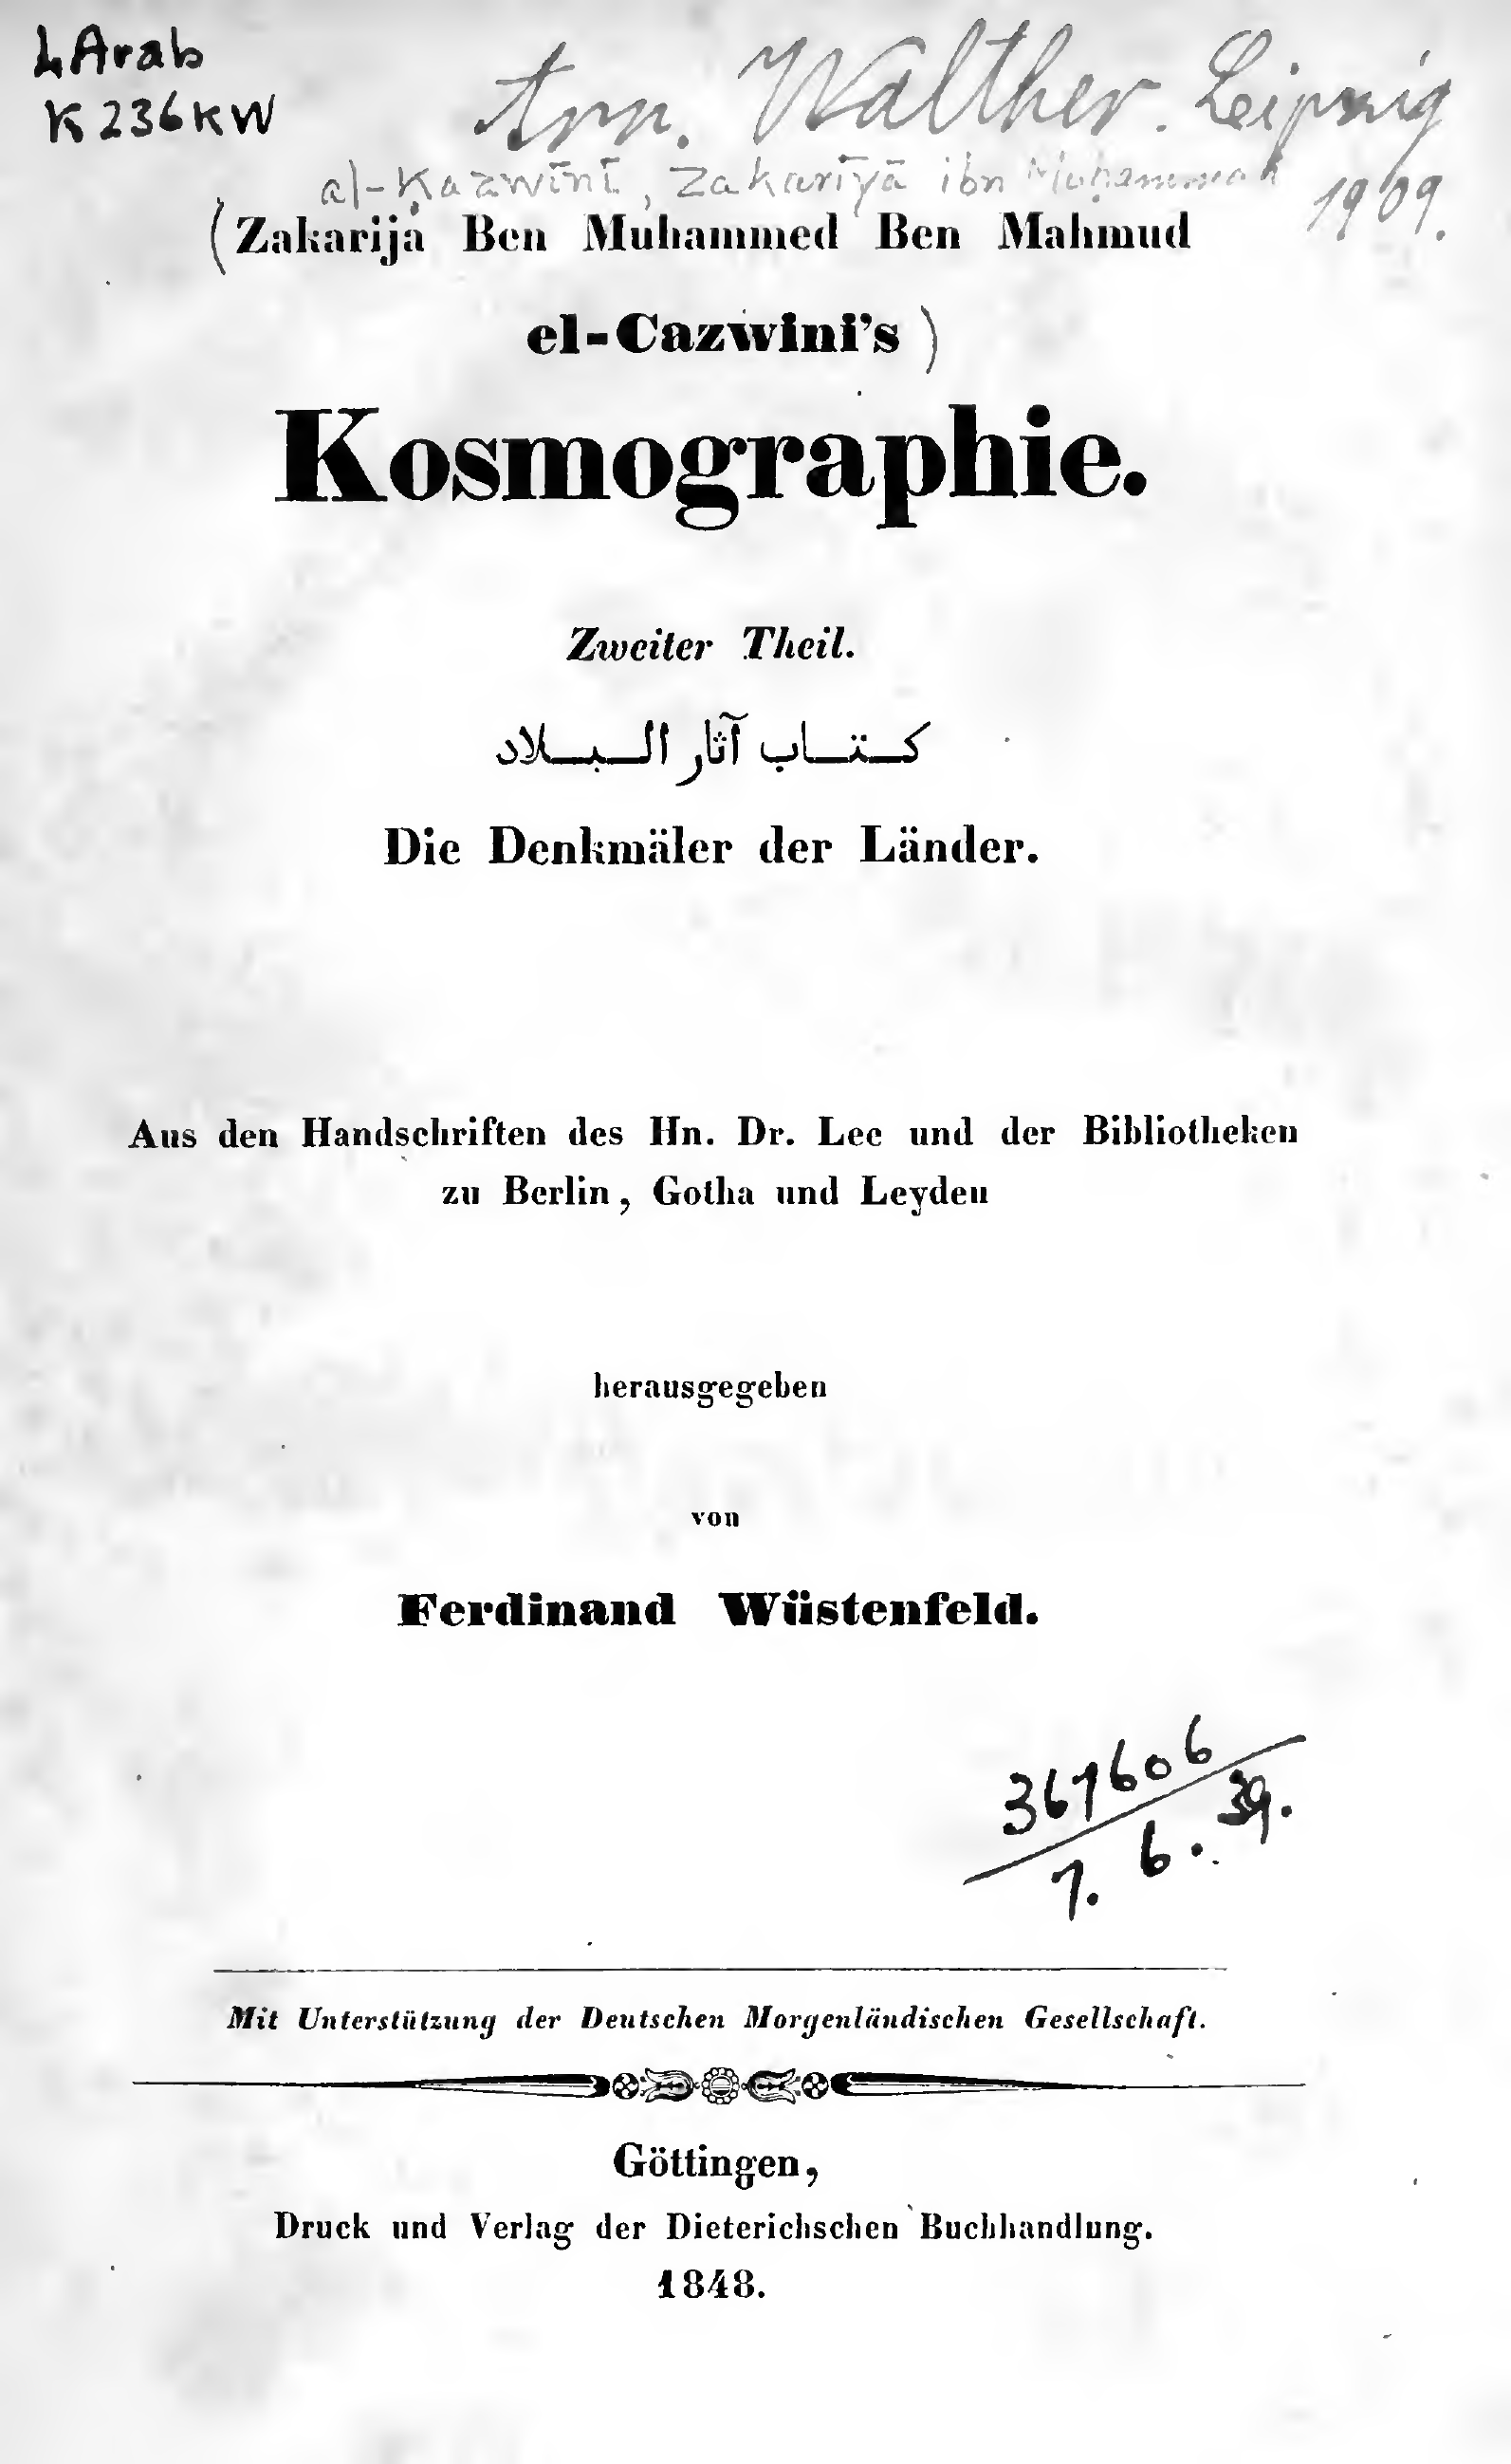 LArab
K236kW
Arn. Walther. Leipzig
1909.
al-Ḳazwīnī, Zakarīyā ibn Muḥammad
(Zakarija Ben Muhammed Ben Mahmud
el-Cazwini's)
Kosmographie.
Zweiter Theil.
كتاب آثار البلاد
Die Denkmäler der Länder.
Aus den Handschriften des Hn. Dr. Lee und der Bibliotheken
zu Berlin, Gotha und Leyden
herausgegeben
von
Ferdinand Wüstenfeld.
367606
7. 6. 39.
Mit Unterstützung der Deutschen Morgenländischen Gesellschaft.
Göttingen,
Druck und Verlag der Dieterichschen Buchhandlung.
1848.